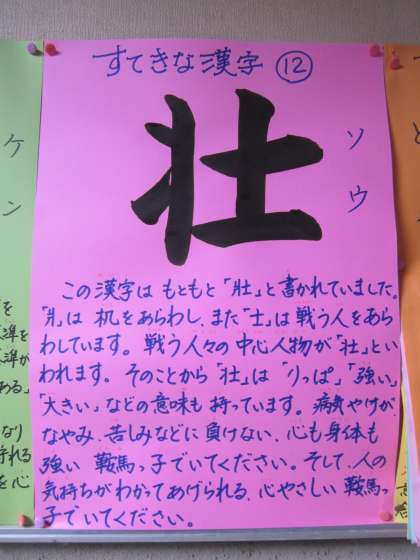 すてきな漢字 ⑫
壮
ソウ
この漢字は もともと「壯」と書かれていました。
「爿」は 机をあらわし、また「士」は戦う人をあら
わしています。 戦う人々の 中心人物が「壮」とい
われます。 そのことから「壮」は 「りっぱ」「強い」
「大きい」などの意味も 持っています。 病気やけが
なやみ、苦しみなどに 負けない、心も身体も
強い 鞍馬っ子でいてください。そして、人の
気持ちが わかってあげられる、心やさしい 鞍馬っ
子でいてください。
ケン